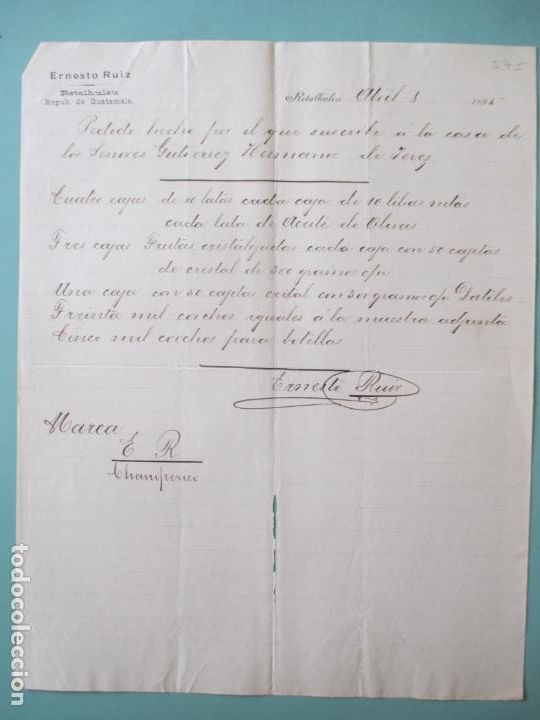 575
Ernesto Ruiz
Retalhuleu
Repub. de Guatemala.
Retalhuleu Abril 8 1895
Pedido hecho por el que suscribe á la casa de
los Señores Gutierrez Hermann de Jerez
Cuatro cajas de 10 latas cada caja de 10 libras netas
cada lata de Aceite de Olivas
Tres cajas Frutas cristalizadas cada caja con 50 cajitas
de cristal de 300 gramos c/u
Una caja con 50 cajita cristal con 300 gramos c/u Datiles
Treinta mil corchos iguales á la muestra adjunta
Cinco mil corchos para botellas
Ernesto Ruiz
Marca
E R
Champerico
todocoleccion